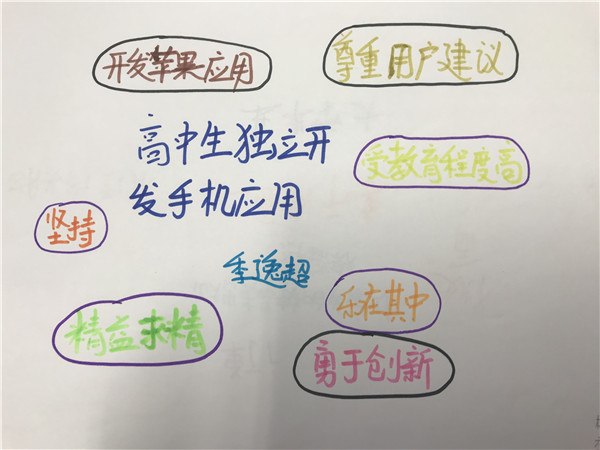 开发苹果应用
尊重用户建议
高中生独立开
发手机应用
受教育程度高
坚持
季逸超
乐在其中
精益求精
勇于创新